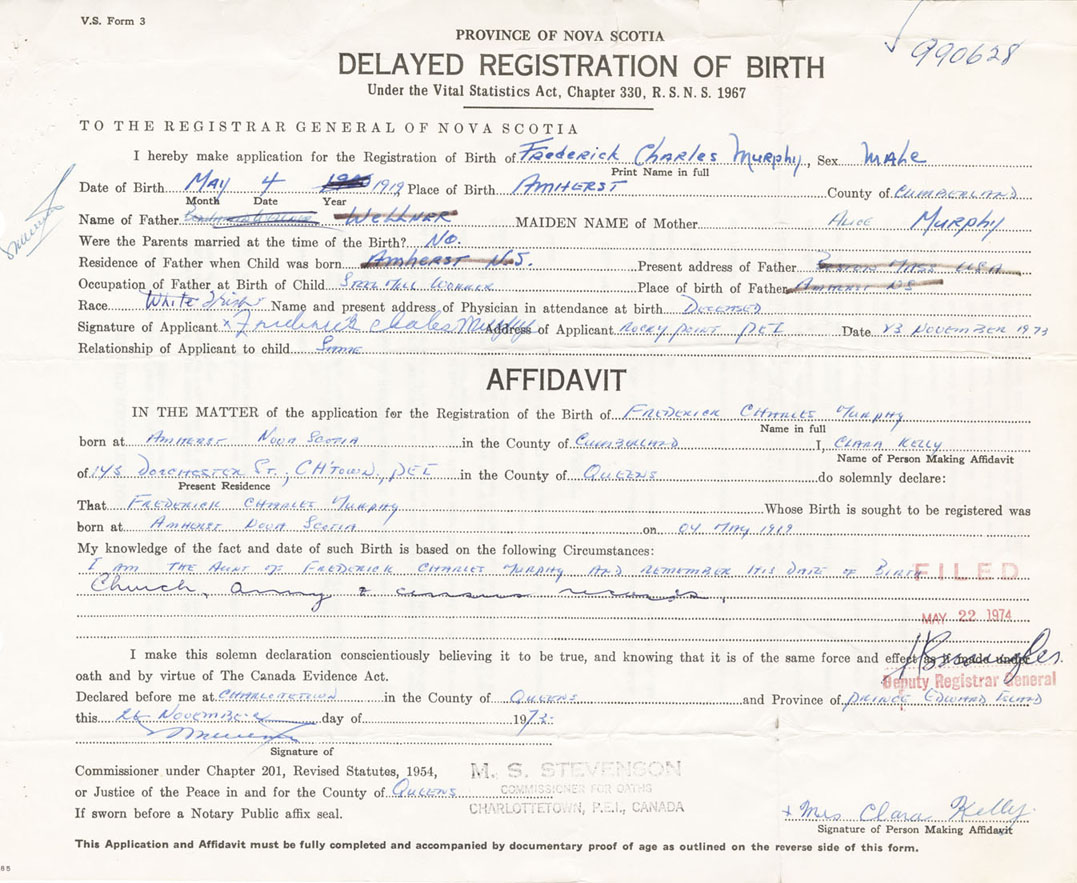 V.S. Form 3
990628
PROVINCE OF NOVA SCOTIA
DELAYED REGISTRATION OF BIRTH
Under the Vital Statistics Act, Chapter 330, R. S. N. S. 1967
TO THE REGISTRAR GENERAL OF NOVA SCOTIA
I hereby make application for the Registration of Birth of Frederick Charles Murphy, Sex Male
Print Name in full
Date of Birth May 4 1919 Place of Birth Amherst County of Cumberland
Month Date Year
Name of Father Wellner MAIDEN NAME of Mother Alice Murphy
Were the Parents married at the time of the Birth? No.
Residence of Father when Child was born Amherst N.S. Present address of Father Boston Mass USA
Occupation of Father at Birth of Child Steel Mill Worker Place of birth of Father Amherst NS
Race White Irish Name and present address of Physician in attendance at birth Deceased
Signature of Applicant x Frederick Chales Murphy Address of Applicant Rocky Point PEI Date 23 November 1973
Relationship of Applicant to child Same
AFFIDAVIT
IN THE MATTER of the application for the Registration of the Birth of Frederick Charles Murphy
Name in full
born at Amherst Nova Scotia in the County of Cumberland I, Clara Kelly
Name of Person Making Affidavit
of 143 Dorchester St., CHTOWN, PEI in the County of Queens do solemnly declare:
Present Residence
That Frederick Charles Murphy Whose Birth is sought to be registered was
born at Amherst Nova Scotia on 04 May 1919
My knowledge of the fact and date of such Birth is based on the following Circumstances:
I am the Aunt of Frederick Charles Murphy and remember his date of Birth
FILED
Church, army & census records.
MAY 22 1974
I make this solemn declaration conscientiously believing it to be true, and knowing that it is of the same force and effect as if made under
oath and by virtue of The Canada Evidence Act.
Deputy Registrar General
Declared before me at Charlottetown in the County of Queens and Province of Prince Edward Island
this 26 November day of 1973
Signature of
Commissioner under Chapter 201, Revised Statutes, 1954,
or Justice of the Peace in and for the County of Queens
If sworn before a Notary Public affix seal.
M. S. STEVENSON
COMMISSIONER FOR OATHS
CHARLOTTETOWN, P.E.I., CANADA
x Mrs Clara Kelly
Signature of Person Making Affidavit
This Application and Affidavit must be fully completed and accompanied by documentary proof of age as outlined on the reverse side of this form.
85